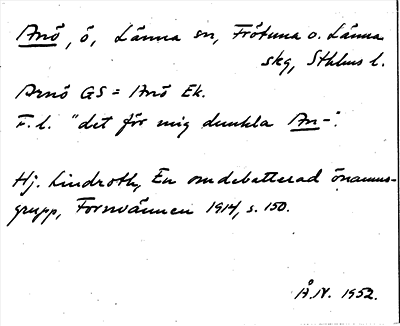 Anö, ö, Länna sn, Frötuna o. Länna
skg, Sthlms l.
Arnö GS = Anö Ek.
F.l. "det för mig dunkla An-".
Hj. Lindroth, En omdebatterad önamns-
grupp, Fornvännen 1914, s. 150.
Å.N. 1952.